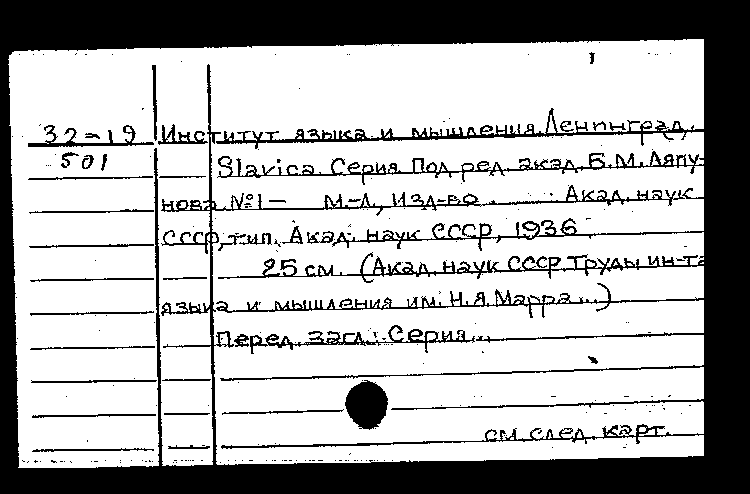 32-19 Институт языка и мышления. Ленинград.
501 Slavica. Серия. Под ред. акад. Б.М. Ляпу-
нова. №1- М.-Л., Изд-во. Акад. наук
СССР, тип. Акад. наук СССР, 1936
25 см. (Акад. наук СССР. Труды ин-та
языка и мышления им. Н.Я. Марра...)
Перед. загл.: Серия...
см. след. карт.